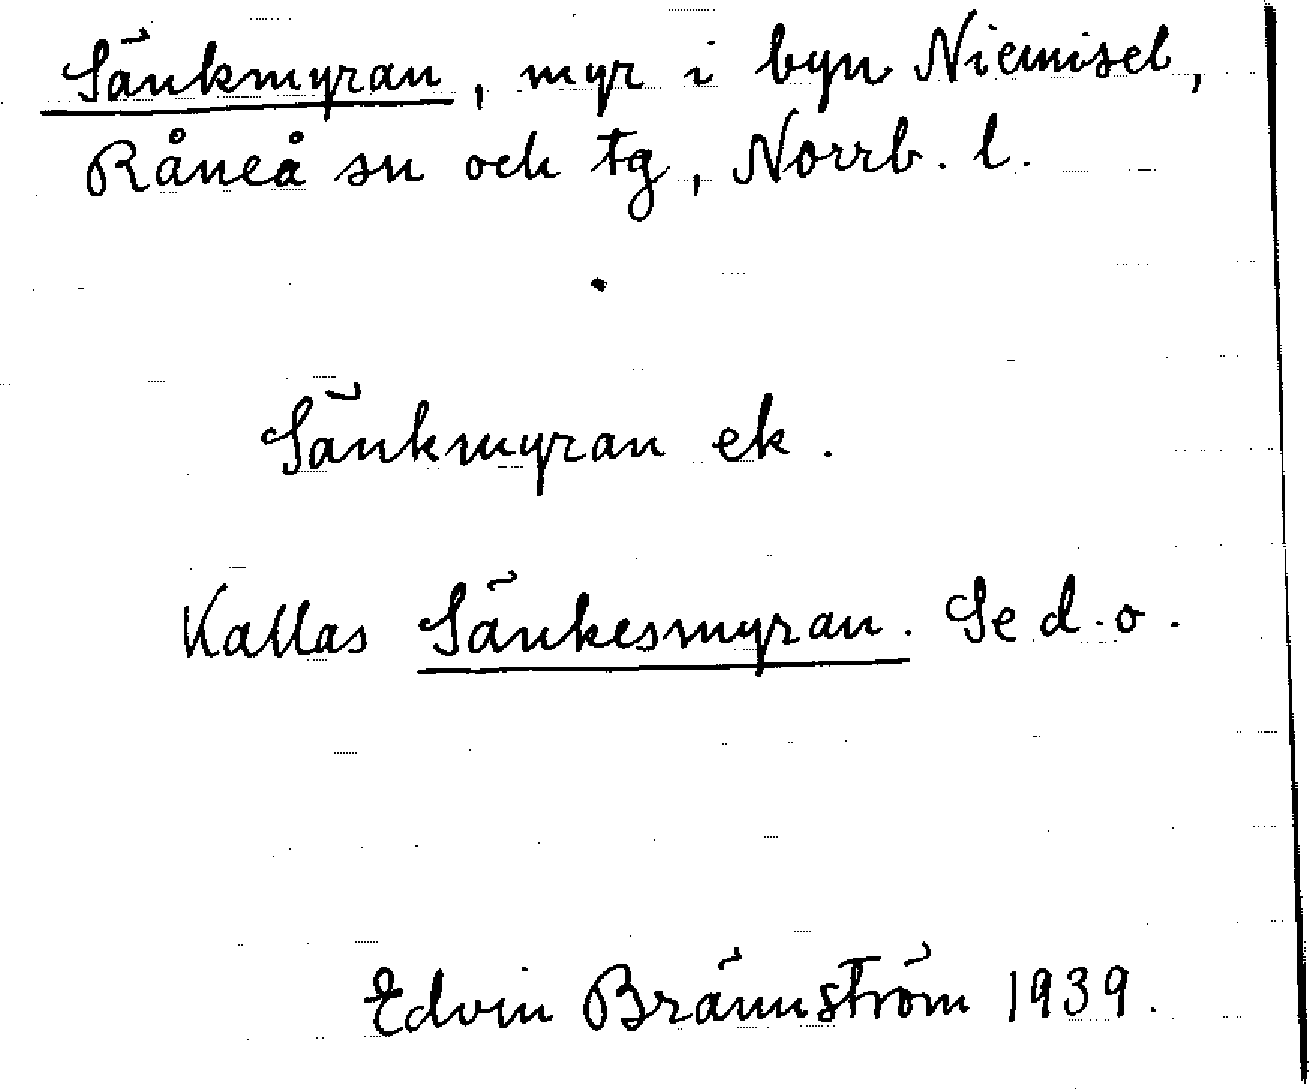 Sänkmyran, myr i byn Niemisel,
Råneå sn och tg, Norrb. l.
Sänkmyran ek.
Kallas Sänkesmyran. Se d. o.
Edvin Brännström 1939.